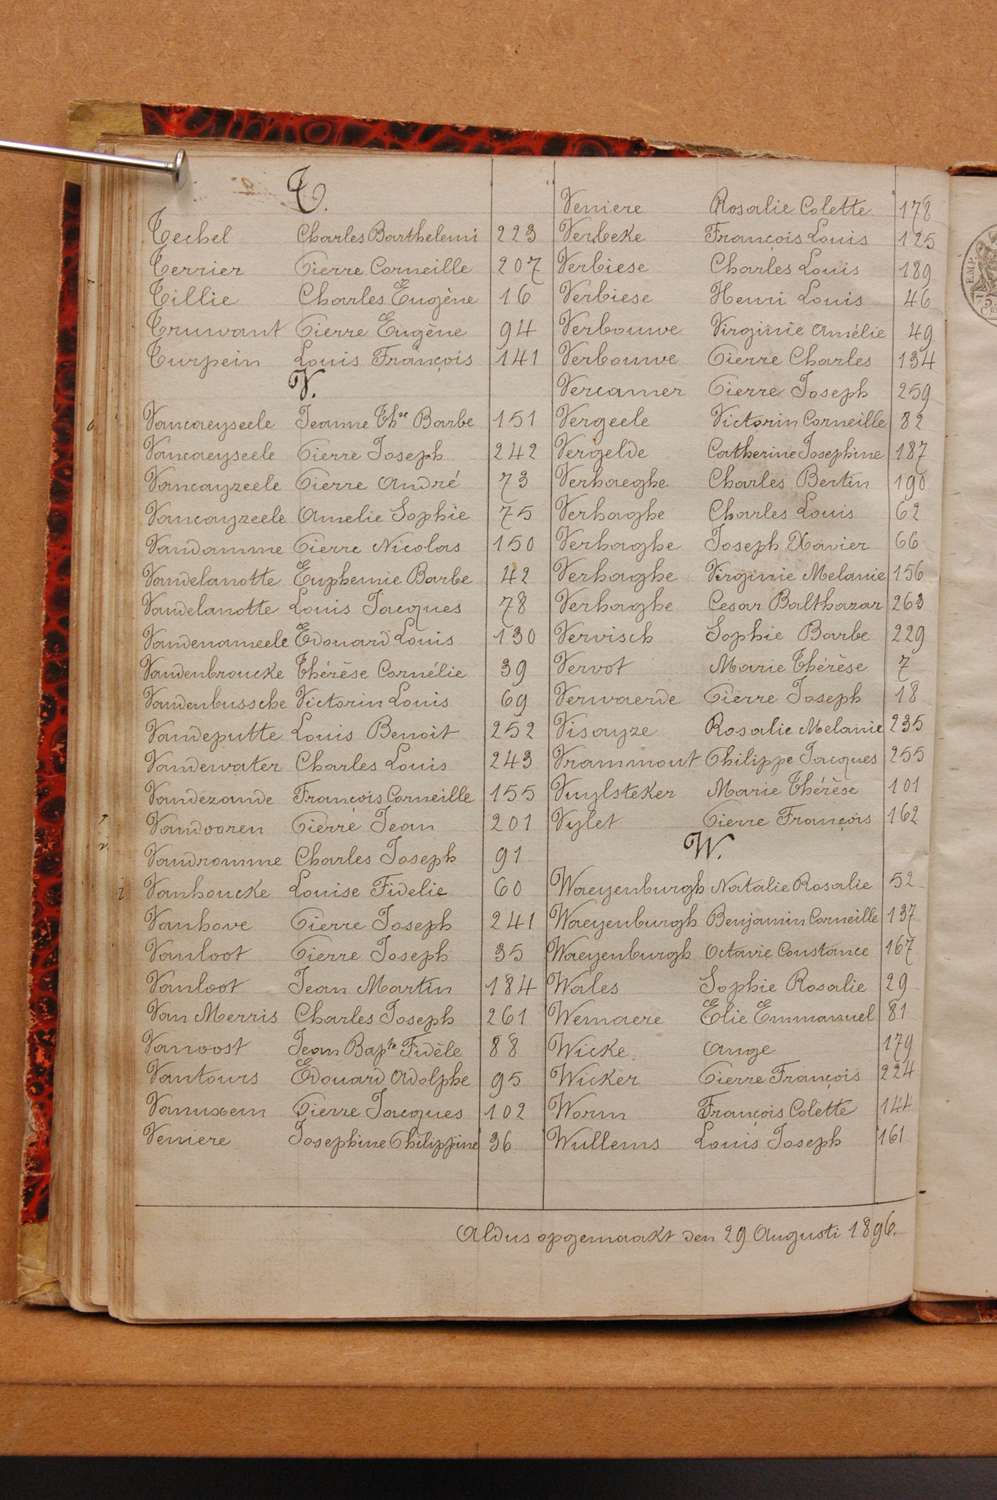 T.
Techel Charles Barthelemi 223
Terrier Pierre Corneille 207
Tillie Charles Eugène 16
Truwant Pierre Eugène 94
Turpein Louis François 141
V.
Vancaeyseele Jeanne Thse Barbe 151
Vancaeyseele Pierre Joseph 242
Vancayzeele Pierre André 73
Vancayzeele Amelie Sophie 75
Vandamme Pierre Nicolas 150
Vandelanotte Euphemie Barbe 42
Vandelanotte Louis Jacques 78
Vandenameele Edouard Louis 130
Vandenbroucke Thérèse Cornélie 39
Vandenbussche Victorin Louis 69
Vandeputte Louis Benoit 252
Vandewater Charles Louis 243
Vandezande François Corneille 155
Vandooren Pierre Jean 201
Vandromme Charles Joseph 91
Vanhoucke Louise Fidelie 60
Vanhove Pierre Joseph 241
Vanloot Pierre Joseph 35
Vanloot Jean Martin 184
Van Merris Charles Joseph 261
Vanoost Jean Bapte Fidèle 88
Vantours Edouard Adolphe 95
Vanuxem Pierre Jacques 102
Veniere Josephine Philippine 36
Veniere Rosalie Colette 178
Verbeke François Louis 125
Verbiese Charles Louis 189
Verbiese Henri Louis 46
Verbouwe Virginie Amélie 49
Verbouwe Pierre Charles 134
Vercamer Pierre Joseph 259
Vergeele Victorin Corneille 82
Vergelde Catherine Josephine 187
Verhaeghe Charles Bertin 190
Verhaghe Charles Louis 62
Verhaghe Joseph Xavier 66
Verhaghe Virginie Melanie 156
Verhaghe Cesar Balthazar 263
Vervisch Sophie Barbe 229
Vervot Marie Thérèse 7
Verwaerde Pierre Joseph 18
Visayze Rosalie Melanie 235
Vrammout Philippe Jacques 255
Vuylsteker Marie Thérèse 101
Vylet Pierre François 162
W.
Waeyenburgh Natalie Rosalie 52
Waeyenburgh Benjamin Corneille 137
Waeyenburgh Octavie Constance 167
Wales Sophie Rosalie 29
Wemaere Elie Emmanuel 81
Wicke Ange 179
Wicker Pierre François 224
Worm François Colette 144
Wullems Louis Joseph 161
Aldus opgemaakt den 29 Augusti 1896.